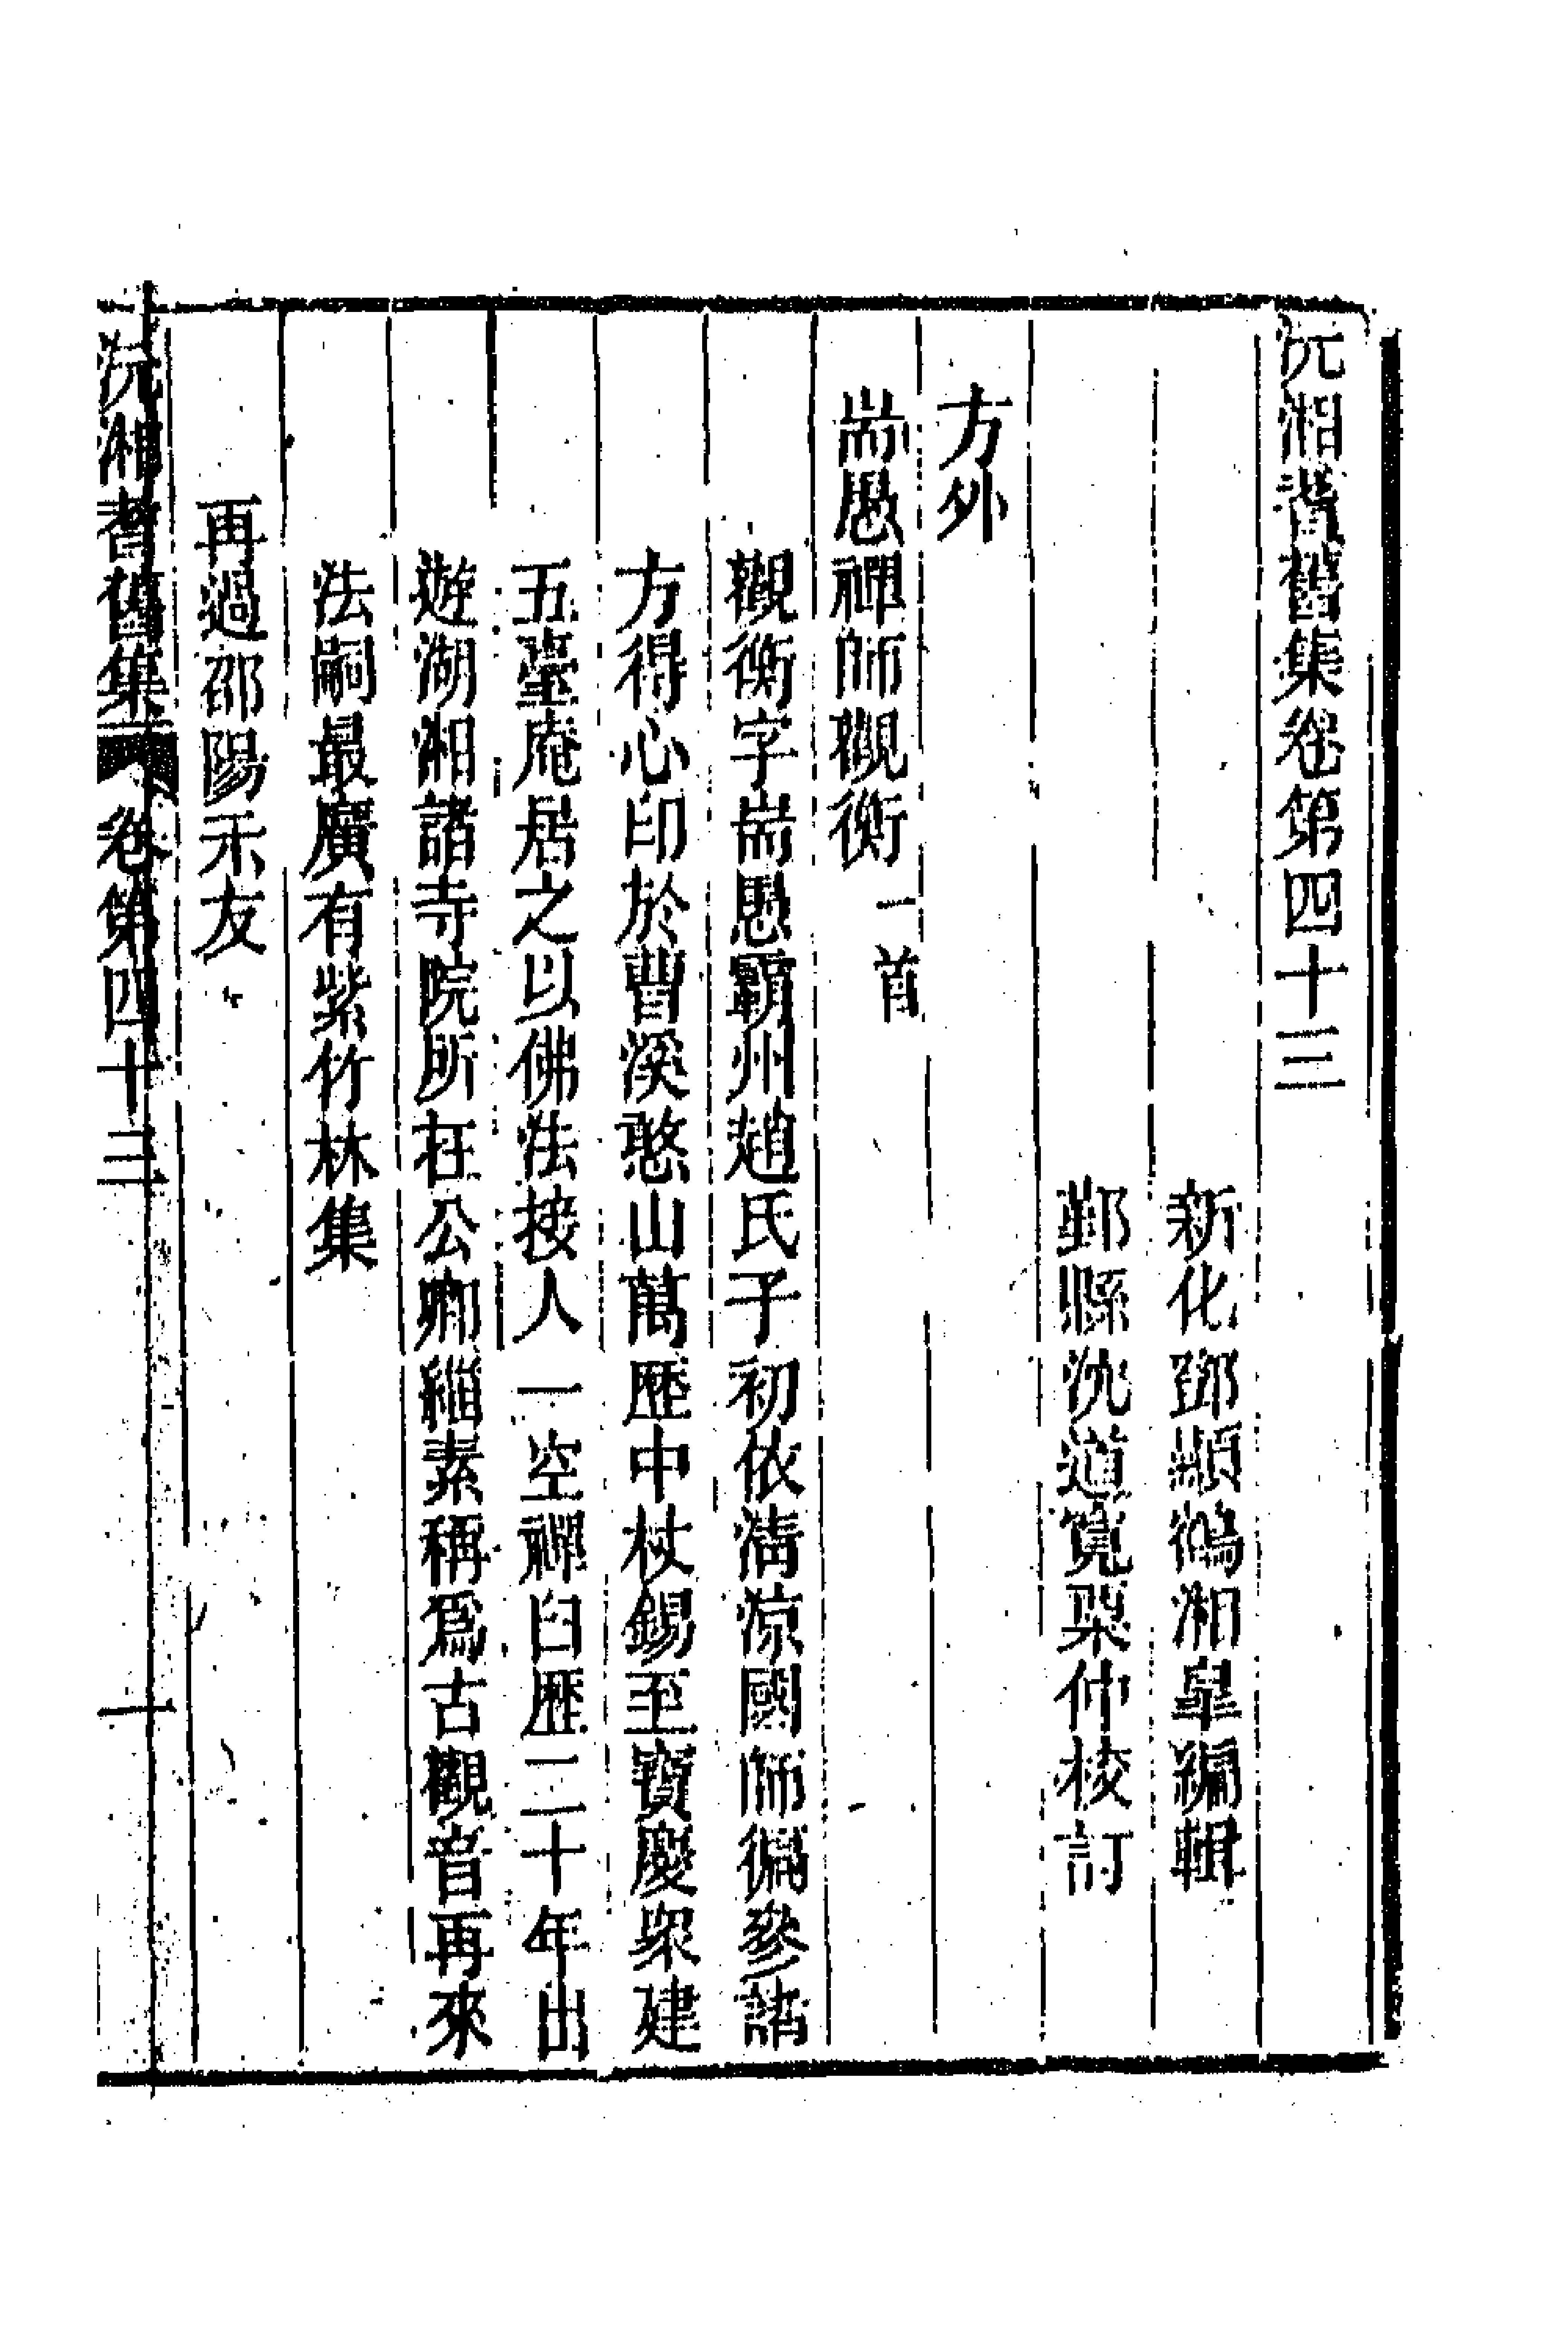 沅湘耆舊集卷第四十三
新化鄧顯鶴湘皐編輯
鄞縣沈道寬栗仲校訂
方外
耑愚禪師觀衡一首
觀衡字耑愚霸州趙氏子初依淸涼國師徧參諸
方得心印於曹溪憨山萬歷中杖錫至寶慶衆建
五臺庵居之以佛法接人一空禪臼歷二十年出
遊湖湘諸寺院所在公卿緇素稱爲古觀音再來
法嗣最廣有紫竹林集
再過邵陽禾友
沅湘耆舊集 卷第四十三 一